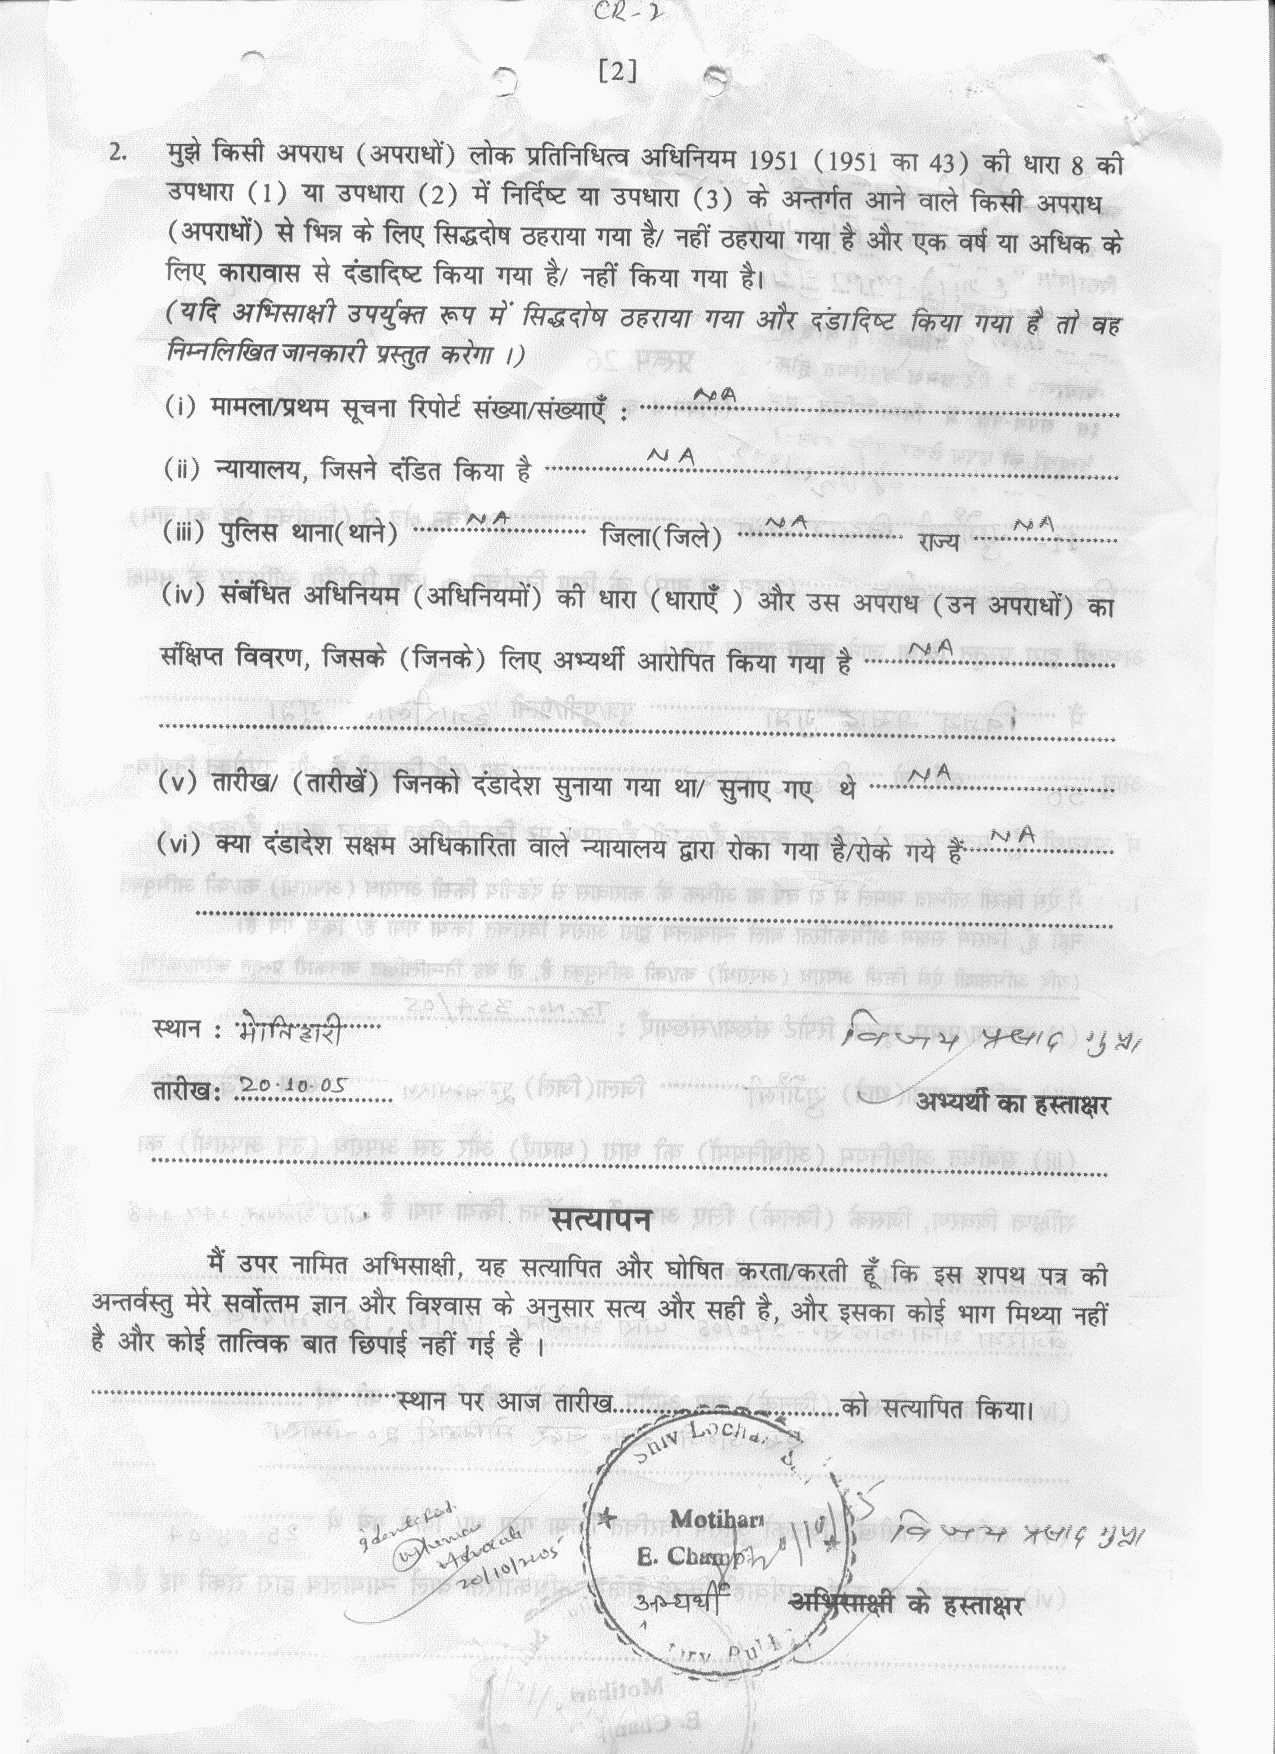 CR-2
[2]
2. मुझे किसी अपराध (अपराधों) लोक प्रतिनिधित्व अधिनियम 1951 (1951 का 43) की धारा 8 की
उपधारा (1) या उपधारा (2) में निर्दिष्ट या उपधारा (3) के अन्तर्गत आने वाले किसी अपराध
(अपराधों) से भिन्न के लिए सिद्धदोष ठहराया गया है/ नहीं ठहराया गया है और एक वर्ष या अधिक के
लिए कारावास से दंडादिष्ट किया गया है/ नहीं किया गया है।
(यदि अभिसाक्षी उपर्युक्त रूप में सिद्धदोष ठहराया गया और दंडादिष्ट किया गया है तो वह
निम्नलिखित जानकारी प्रस्तुत करेगा ।)
(i) मामला/प्रथम सूचना रिपोर्ट संख्या/संख्याएँ : NA
(ii) न्यायालय, जिसने दंडित किया है NA
(iii) पुलिस थाना(थाने) NA जिला(जिले) NA राज्य NA
(iv) संबंधित अधिनियम (अधिनियमों) की धारा (धाराएँ ) और उस अपराध (उन अपराधों) का
संक्षिप्त विवरण, जिसके (जिनके) लिए अभ्यर्थी आरोपित किया गया है NA
(v) तारीख/ (तारीखें) जिनको दंडादेश सुनाया गया था/ सुनाए गए थे NA
(vi) क्या दंडादेश सक्षम अधिकारिता वाले न्यायालय द्वारा रोका गया है/रोके गये हैं NA
स्थान : मोतिहारी विजय प्रसाद गुप्ता
तारीख: 20.10.05 अभ्यर्थी का हस्ताक्षर
सत्यापन
मैं उपर नामित अभिसाक्षी, यह सत्यापित और घोषित करता/करती हूँ कि इस शपथ पत्र की
अन्तर्वस्तु मेरे सर्वोत्तम ज्ञान और विश्वास के अनुसार सत्य और सही है, और इसका कोई भाग मिथ्या नहीं
है और कोई तात्विक बात छिपाई नहीं गई है ।
स्थान पर आज तारीख को सत्यापित किया।
Shiv Lochan
Motihari
E. Champ
identified.
Advocate
20/10/2005
विजय प्रसाद गुप्ता
अभ्यर्थी अभिसाक्षी के हस्ताक्षर